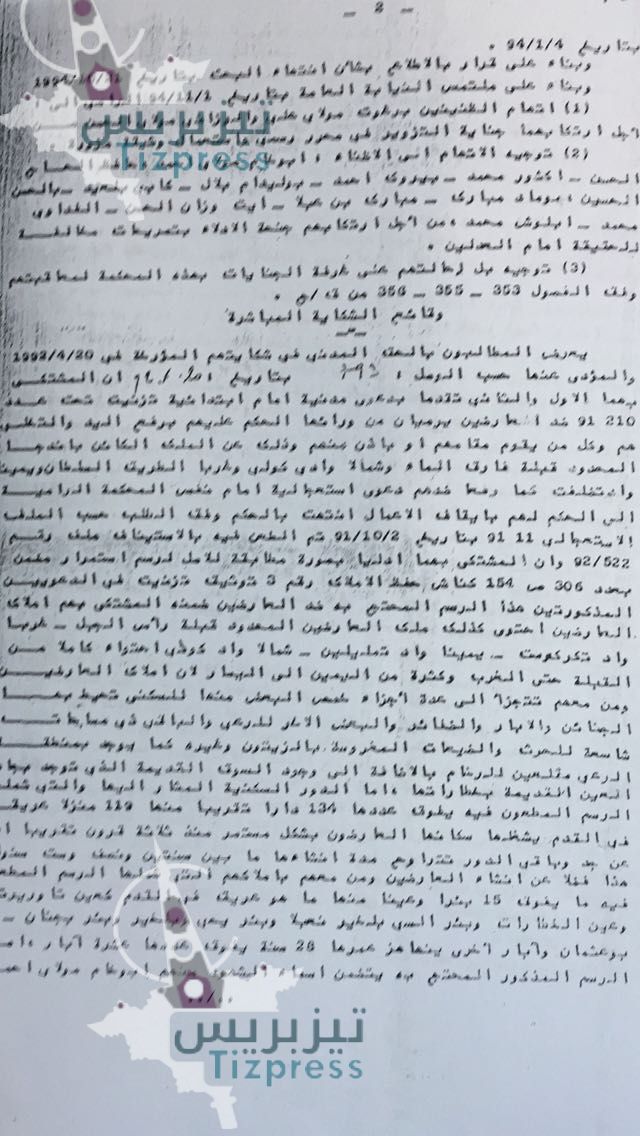 - 2 -
بتاريخ 94/1/4 .
وبناء على قرار بالاطلاع بشأن انتهاء البحث بتاريخ
وبناء على ملتمس النيابة العامة بتاريخ 94/11/1 الرامي الى
(1) اتهام الظنينين برغوت مولاي علي مولاي
اجل ارتكابهما جناية التزوير في محرر رسمي
(2) توجيه الاتهام الى الاظناء :
الحسن - اكتور محمد - بيروك احمد - بوليدام بلال - سعيد - بالحسن
الحسين ، بوماد مبارك - مبارك بن عبلا - ايت وزان الحسن -
محمد - ابلوش محمد ، من اجل ارتكابهم جنحة الادلاء بتصريحات مخالفة
للحقيقة امام العدلين .
(3) توجيه بل احالتهم على غرفة الجنايات بهذه المحكمة لمعاقبتهم
وفق الفصول 353 - 355 - 356 من ق/ج .
وقائع الشكاية المباشرة
يعرض المطالبون بالحق المدني في شكايتهم المؤرخة في 1992/4/20
والمؤدى عنها حسب الوصل ، 793 بتاريخ ، ان المشتكى
بهما الاول والثاني تقدما بدعوى مدنية امام ابتدائية تزنيت تحت عدد
210 91 ضد العارضين يرميان من ورائها الحكم عليهم برفع اليد والتخلي
هم وكل من يقوم مقامهم او باذن منهم وذلك عن الملك الكائن
المحدود قبلة فارق الماء وشمالا وادي كولي وغربا الطريق السلطان ويمينا
وادتخلفت كما رفعا ضدهم دعوى استعجالية امام نفس المحكمة الرامية
الى الحكم لهم بايقاف الاعمال انتهت بالحكم وفق الطلب حسب الملف
الاستعجالي 11 91 بتاريخ 91/10/2 تم الطعن فيه بالاستيناف ملف رقم
92/522 وان المشتكى بهما ادليا بصورة مطابقة للاصل لرسم استمرار مضمن
بعدد 306 ص 154 كناش حفظ الاملاك رقم 3 توثيق تزنيت في الدعويين
المذكورتين هذا الرسم المحتج به ضد العارضين ضمنه المشتكى بهم املاك
العارضين احتوى كذلك ملك العارضين المحدود قبلة رأس الجبل - غربا
واد تكركوست - يمينا واد تمليلين - شمالا واد كولي احتواء كاملا من
القبلة حتى المغرب وكثرة من اليمين الى اليسار لان املاك العارضين
ومن معهم تتجزأ الى عدة اجزاء خصص البعض منها للسكنى تحيط بها
الجنائن والابار والحظائر والبعض الاخر للرعي والباقي ذي مساحات
شاسعة للحرث والضيعات المغروسة بالزيتون وغيره كما يوجد بمنطقة
الرعي مقلعين للرخام بالاضافة الى وجود السوق القديمة الذي توجد بجانبه
العين القديمة بخطاراتها ، اما الدور السكنية المشار اليها والتي شملها
الرسم المطعون فيه يفوق عددها 134 دارا تقريبا منها 119 منزلا عريقة
في القدم يشغلها سكانها العارضون بشكل مستمر منذ ثلاثة قرون تقريبا
عن جد وباقي الدور تتراوح مدة انشاءها ما بين سنتين ونصف وست سنوات
هذا فضلا عن انشاء العارضين ومن معهم باملاكهم التي شملها الرسم المطعون
فيه ما يفوق 15 بئرا وعينا منها ما هو عريق في القدم كعين تاوريرت
وعين الخطارات وبئر السي بلخير نعبلا وبئر يحي وبلخير وبئر بجنان -
بوعثمان وآبار اخرى يناهز عمرها 28 سنة يفوق عددها عشرة آبار ، اما
الرسم المذكور المحتج به يتضمن اسماء الشهود منهم ابوهام مولاي احمد
../..
تيزبريس
Tizpress
تيزبريس
Tizpress